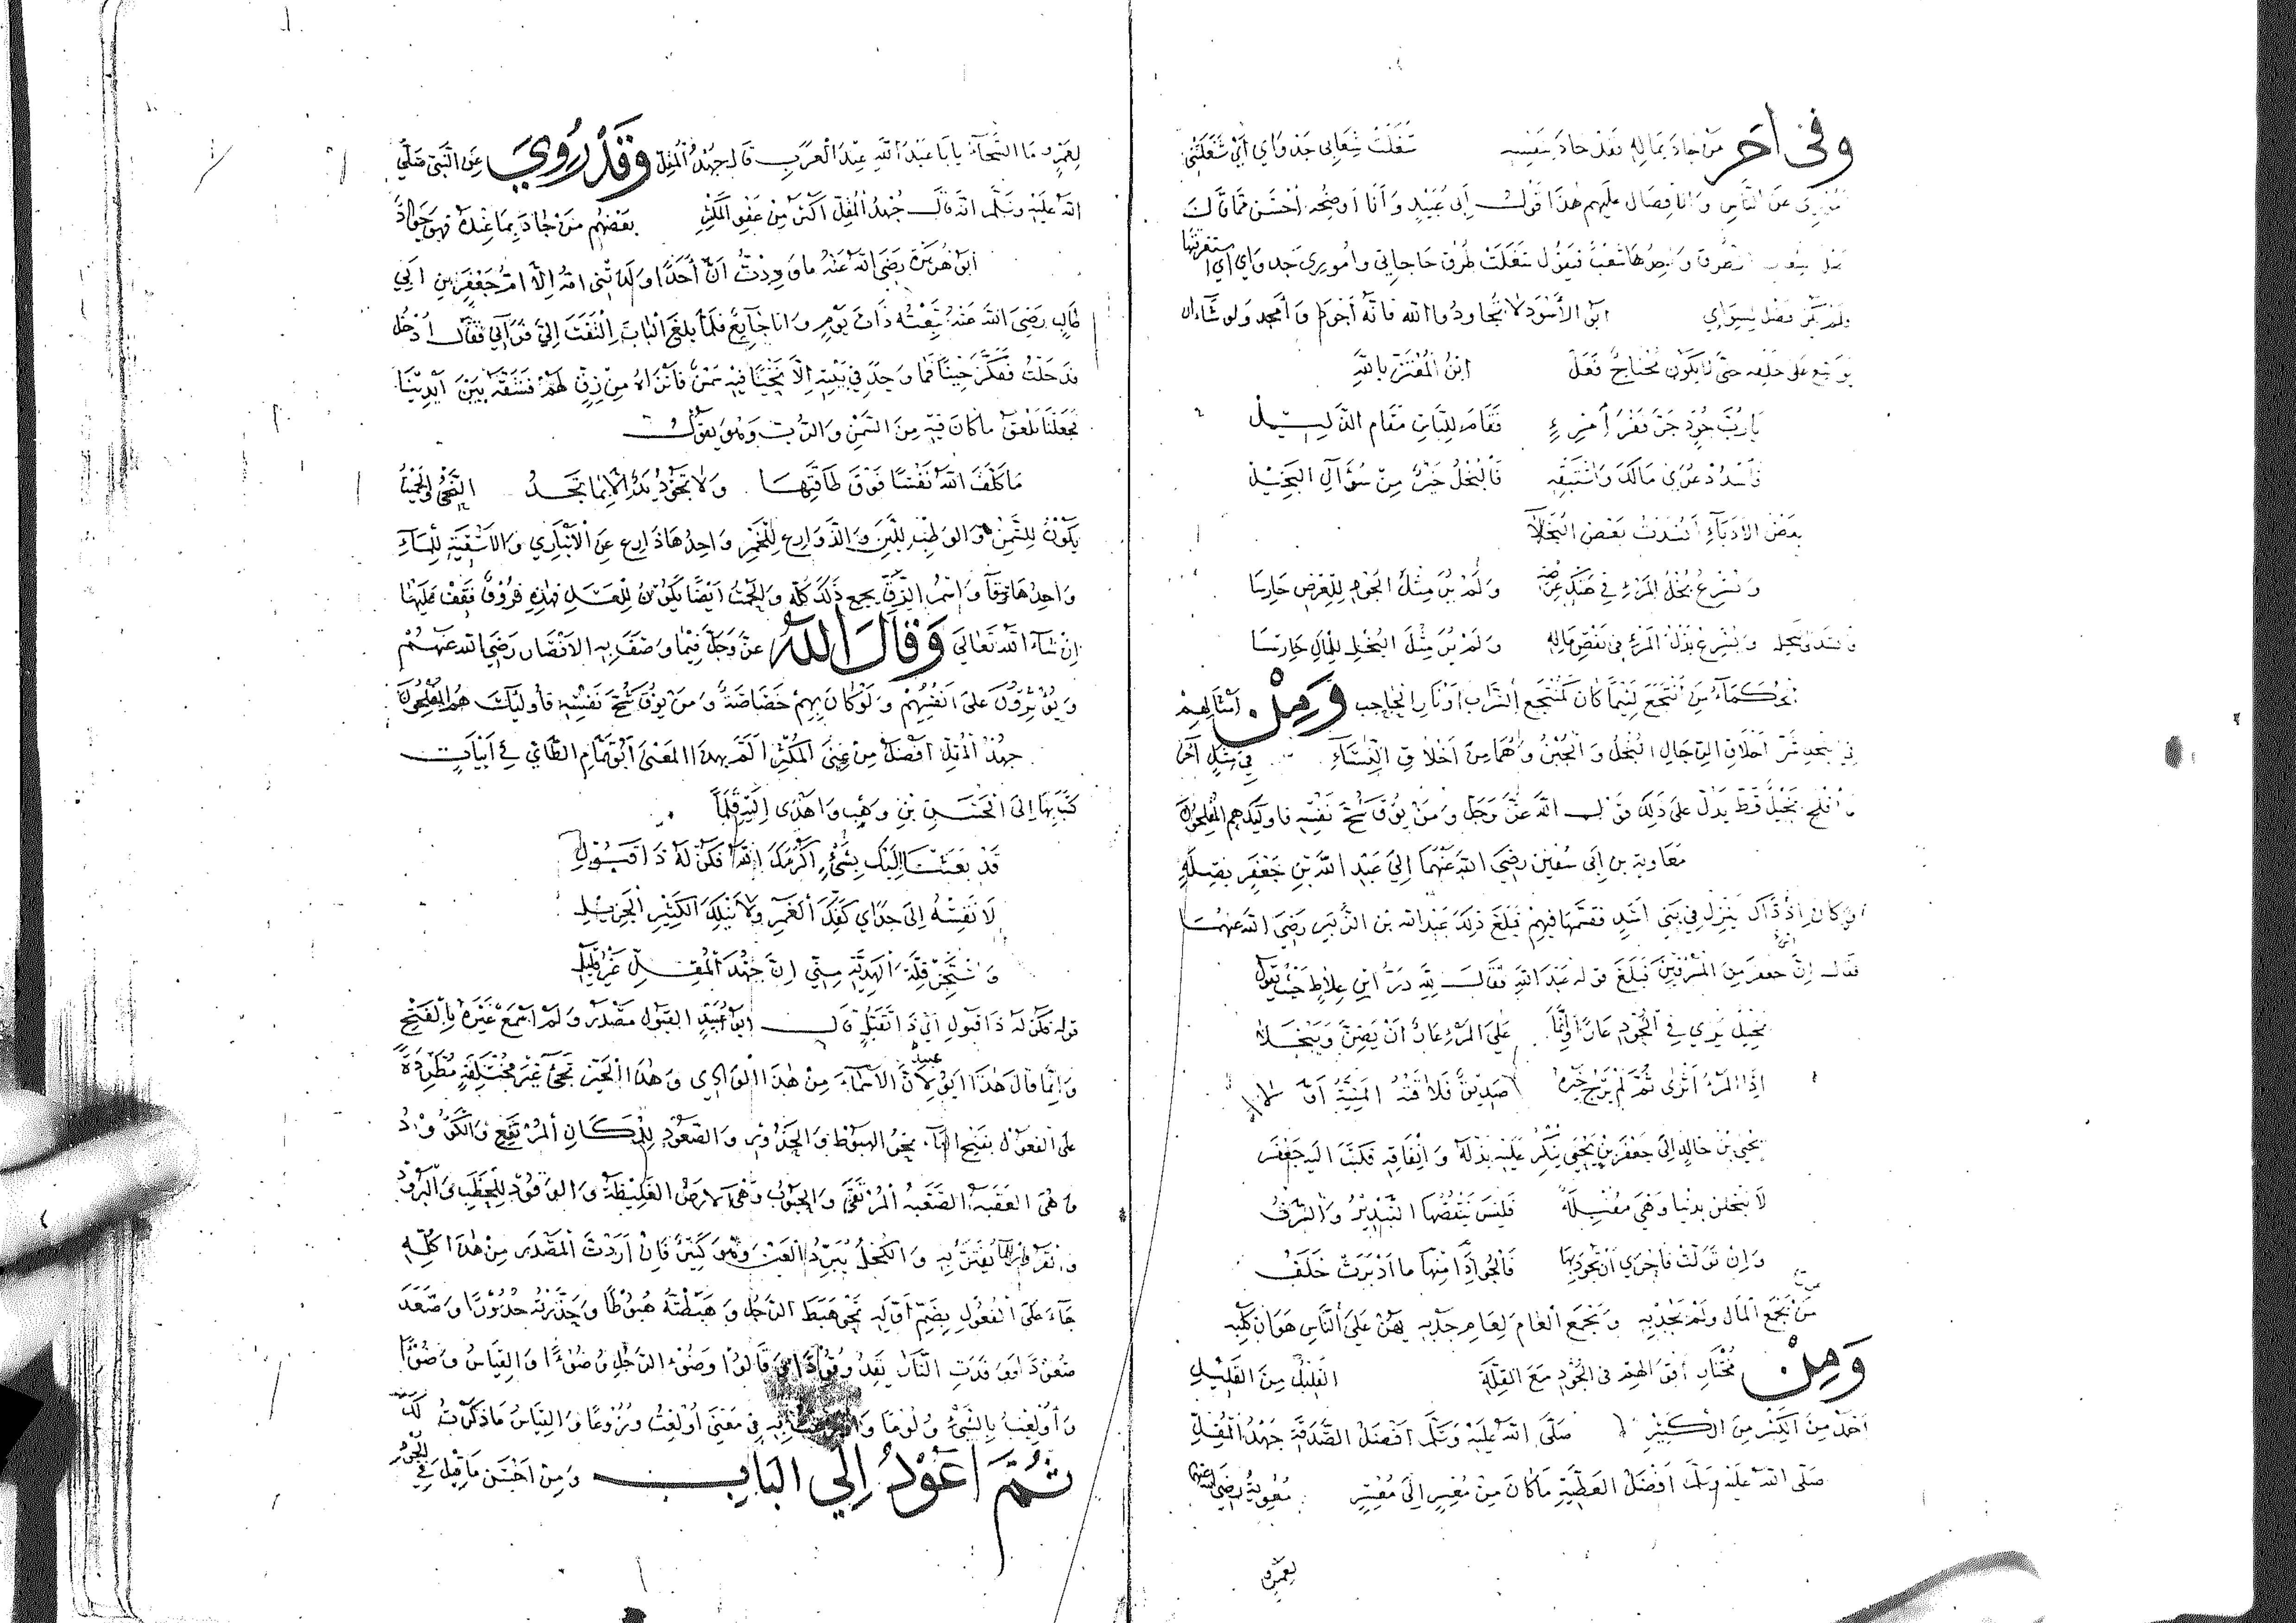 وفي آخر من جاد بماله فقد جاد بنفسه شغلت شعابي جدواي أي شغلتني
عن الناس والافضال عليهم هذا قول أبي عبيد وأنا أوضحه أحسن مما قال
فيقول شغلت طرق حاجاتي وأموري جدواي أي استغرقتها
ولم يكن فضل لسواي ابو الأسود لا تجاودوا الله فانه أجود وأمجد ولو شاء ان
يوسع على خلقه حتى لا يكون محتاج فعل ابن المعتز بالله
يا رب جود جر فقر امرئ فقام للناس مقام الذليل
فاشدد عرى مالك واستبقه فالبخل خير من سؤال البخيل
بعض الأدباء أنشدت بعض البخلاء
ويسرع بخل المرء في هتك عرضه ولم ير مثل الجود للعرض حارسا
ويسرع بذل المرء في نقص ماله ولم ير مثل البخل للمال حارسا
الحكماء من انتجع لئيما كان كمنتجع السراب أو نار الحباحب ومن أمثالهم
شر اخلاق الرجال البخل والجبن وهما من أخلاق النساء في مثل آخر
ما أفلح بخيل قط يدل على ذلك قول الله عز وجل ومن يوق شح نفسه فاوليك هم المفلحون
معاوية بن ابي سفين رضي الله عنهما إلى عبد الله بن جعفر بصلة
كان اذ ذاك ينزل في بني اسد فقسمها فيهم فبلغ ذلك عبد الله بن الزبير رضي الله عنهما
فقال إن ابن جعفر من المسرفين فبلغ قوله عبد الله فقال لله در ابن علاط حيث يقول
بخيل يرى في الجود عارا وإنما على المرء عار أن يضن ويبخلا
إذا المرء أثرى ثم لم يرج خيره صديق فلاقته المنية أولا
يحيى بن خالد إلى جعفر بن يحيى ينكر عليه بذله وانفاقه فكتب اليه جعفر
لا تبخلن بدنيا وهي مقبلة فليس ينقصها التبذير والسرف
وإن تولت فاحرى أن تجود بها فالجود منها ما أدبرت خلف
من يجمع المال ولم يجد به ويجمع العام لعام جدبه يهن على الناس هوان كلبه
ومن مختار في الجود مع القلة القليل من القليل
أحمد من الكثير من الكثير صلى الله عليه وسلم افضل الصدقة جهد المقل
صلى الله عليه وسلم افضل العطية ما كان من معسر إلى معسر معوية رضي الله عنهما
لعمرو
لعمرو ما السخاء يا با عبد الله عند العرب قال جهد المقل وقد روي عن النبي صلى
الله عليه وسلم انه قال جهد المقل اكثر من عفو المكثر بعضهم من جاد بما عنده فهو جواد
ابو هريرة رضي الله عنه ما وددت أن أحدا ولدتني امه إلا ام جعفر بن ابي
طالب رضي الله عنه تبعته ذات يوم وانا جائع فلما بلغ الباب التفت إلي فرآني فقال ادخل
فدخلت ففكر حينا فما وجد في بيته إلا نحيا فيه سمن فأنزله من رف لهم فشقه بين ايدينا
فجعلنا نلعق ما كان فيه من السمن والرب وهو يقول
ما كلف الله نفسا فوق طاقتها ولا تجود يد الا بما تجد النحي والحميت
يكون للسمن والوطب للبن والذوارع للخمر واحدها ذارع عن الانباري والاسقية للماء
واحدها سقاء واسم الزق يجمع ذلك كله والحميت أيضا يكون للعسل فهذه فروق تقف عليها
إن شاء الله تعالى وقال الله عز وجل فيما وصف به الأنصار رضي الله عنهم
ويؤثرون على انفسهم ولو كان بهم خصاصة ومن يوق شح نفسه فأوليك هم المفلحون
جهد المقل افضل من غنى المكثر ألم بهذا المعنى ابو تمام الطائي في أبيات
كتب بها إلى الحسن بن وهب واهدى اليه قلما
قد بعثنا إليك بشيء اكرمك الله فكن له ذا قبول
لا تقسه إلى جداي كفك الغمر ولا نيلك الكثير الجزيل
واستجز قلة الهدية مني إن جهد المقل غير قليل
قوله فكن له ذا قبول اي ذا تقبل قال ابو عبيد القبول مصدر ولم اسمع غيره بالفتح
وانما قال هذا ابو عبيد لأن الأسماء من هذا الوادي وهذا الحيز تجيء غير مختلفة مطردة
على الفعول بفتح الفاء نحو الهبوط والحدور والصعود للمكان المرتفع والكؤود
وهي العقبة الصعبة المرتقى والجبوب وهي الأرض الغليظة والوقود للحطب والبرود
لما يقتر به والكحل يبرد العين وهو كثير فان اردت المصدر من هذا كله
جاء على الفعول بضم أوله نحو هبط الرجل وهبطته هبوطا وحدرته حدورا وصعد
صعودا ووقدت النار تقد وقودا قالوا وضوء الرجل وضوءا والقياس وضوءا
وأولعت بالشيء ولوعا به في معنى أولعت وزوعا والقياس ما ذكرت لك
ثم اعود إلى الباب ومن احسن ما قيل في الجود